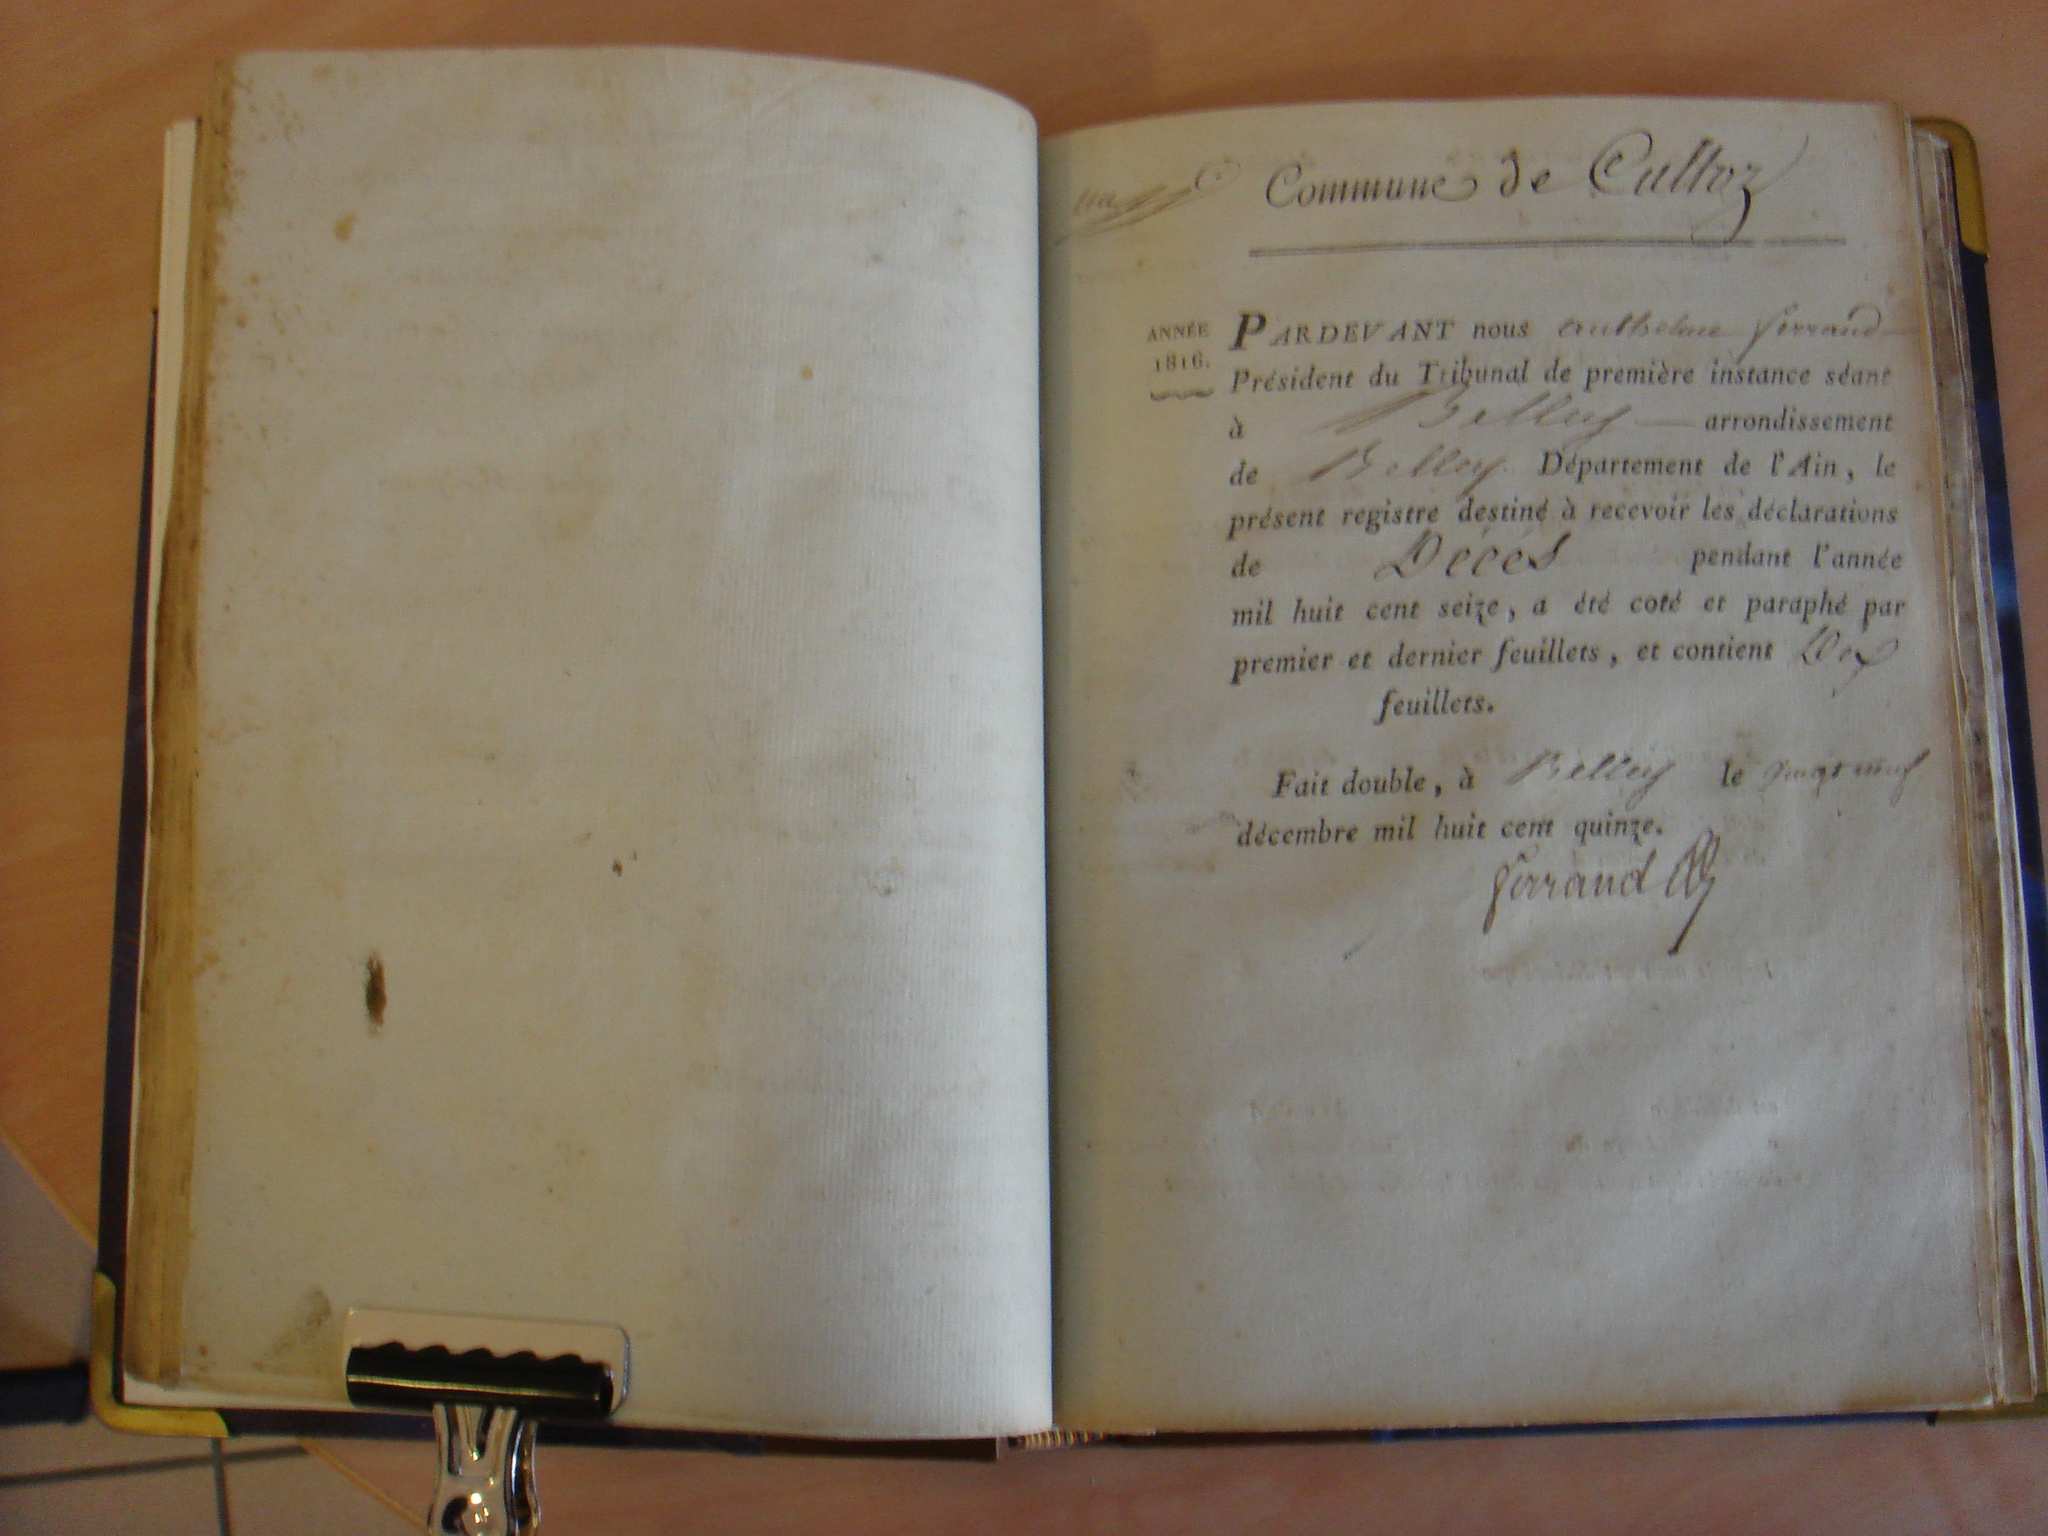 Commune de Culloz
ANNÉE
1816.
PARDEVANT nous anthelme ferrand
Président du Tribunal de première instance séant
à Belley arrondissement
de Belley Département de l'Ain, le
présent registre destiné à recevoir les déclarations
de Décès pendant l'année
mil huit cent seize, a été coté et paraphé par
premier et dernier feuillets, et contient Dix
feuillets.
Fait double, à Belley le vingt neuf
décembre mil huit cent quinze.
ferrand